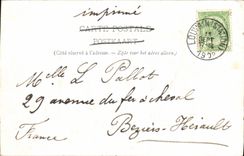 imprimé
CARTE POSTALE
POSTKAART
(Côté réservé à l'adresse. — Zijde voor het adres alleen.)
Melle L Pallot
29 avenue du fer à cheval
Beziers-Hérault
France